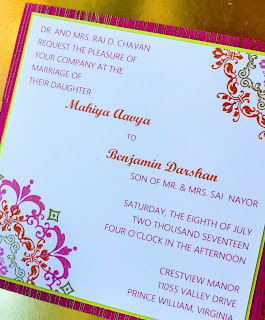 DR. AND MRS. RAJ D. CHAVAN
REQUEST THE PLEASURE OF
YOUR COMPANY AT THE
MARRIAGE OF
THEIR DAUGHTER
Mahiya Aavya
TO
Benjamin Darshan
SON OF MR. & MRS. SAI NAYOR
SATURDAY, THE EIGHTH OF JULY
TWO THOUSAND SEVENTEEN
FOUR O'CLOCK IN THE AFTERNOON
CRESTVIEW MANOR
11055 VALLEY DRIVE
PRINCE WILLIAM, VIRGINIA